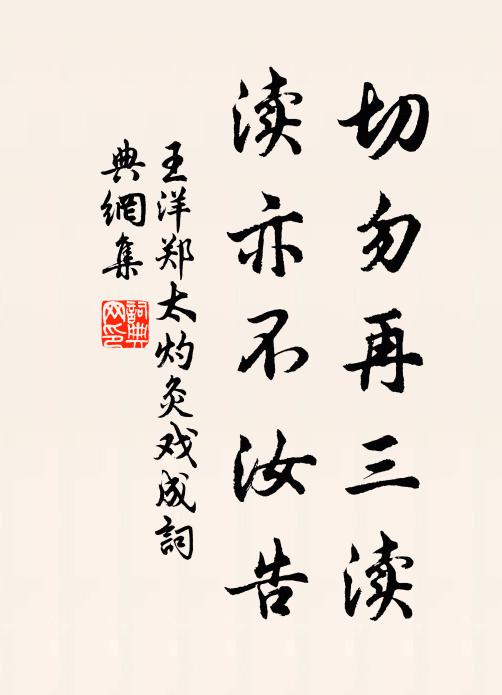 切勿再三渎
渎亦不汝告
王洋郑太灼灸戏成詞
典網集
詞典网印